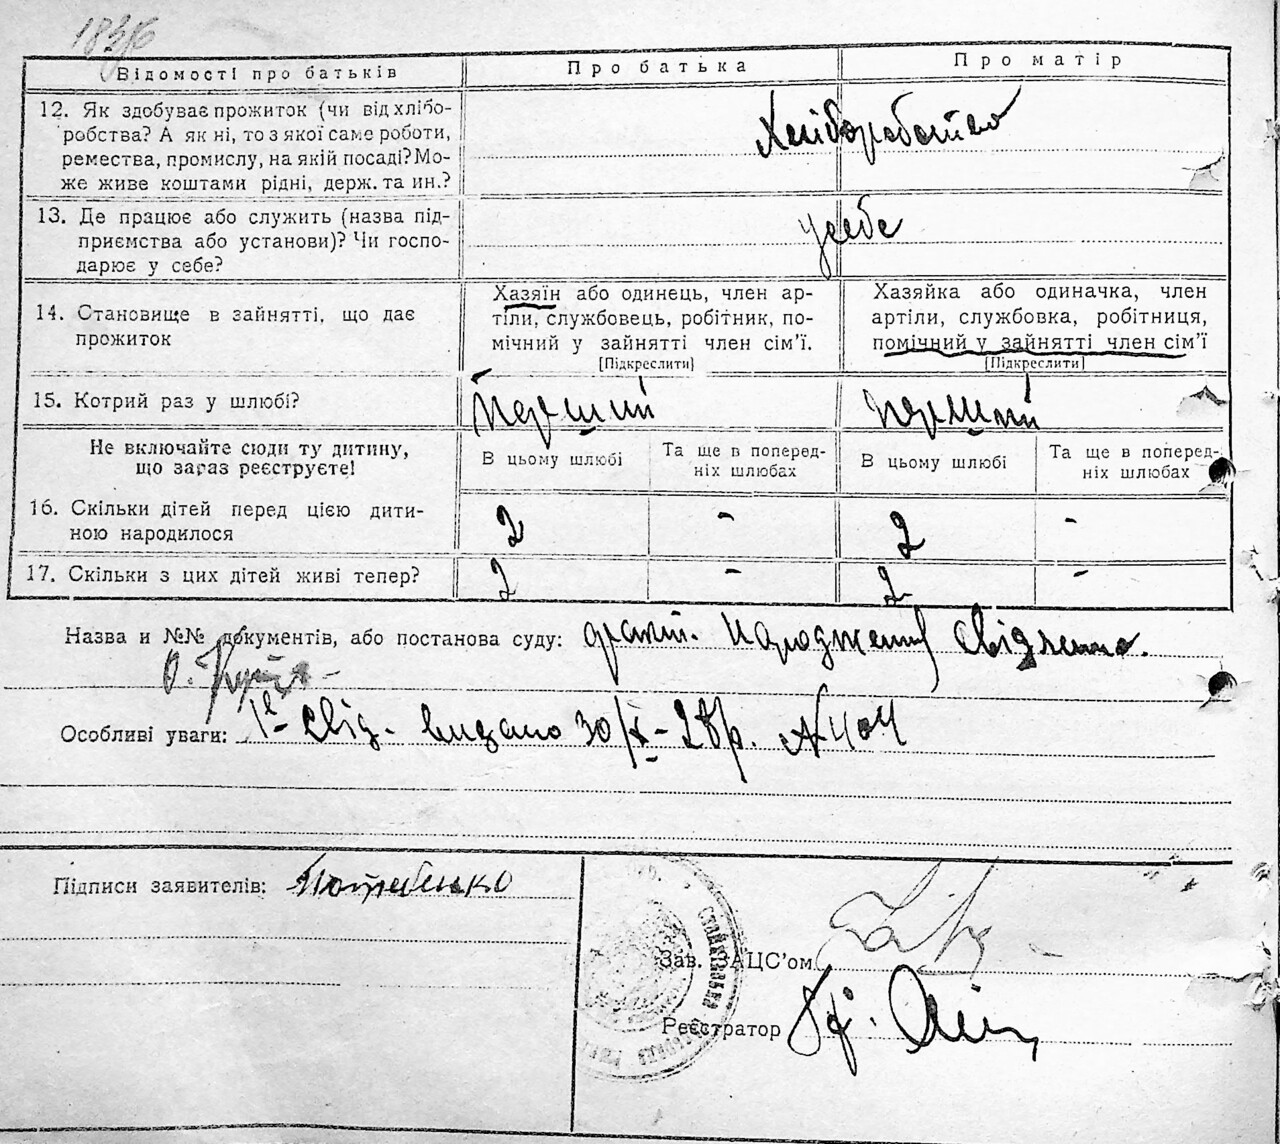 183/6
Відомості про батьків
Про батька
Про матір
12. Як здобуває прожиток (чи від хлібо-
робства? А як ні, то з якої саме роботи,
ремества, промислу, на якій посаді? Мо-
же живе коштами рідні, держ. та ин.?
Хліборобство
13. Де працює або служить (назва під-
приємства або установи)? Чи госпо-
дарює у себе?
у себе
14. Становище в зайнятті, що дає
прожиток
Хазяїн або одинець, член ар-
тіли, службовець, робітник, по-
мічний у зайнятті член сім'ї.
[Підкреслити]
Хазяйка або одиначка, член
артіли, службовка, робітниця,
помічний у зайнятті член сім'ї
[Підкреслити]
15. Котрий раз у шлюбі?
перший
перший
Не включайте сюди ту дитину,
що зараз реєструєте!
В цьому шлюбі
Та ще в поперед-
ніх шлюбах
В цьому шлюбі
Та ще в поперед-
ніх шлюбах
16. Скільки дітей перед цією дити-
ною народилося
2 - 2 -
17. Скільки з цих дітей живі тепер?
2 - 2 -
Назва и №№ документів, або постанова суду:
Особливі уваги: свід. видано 30/X-28р. №404
Підписи заявителів: Потебенко
Зав. ЗАЦС'ом
Реєстратор